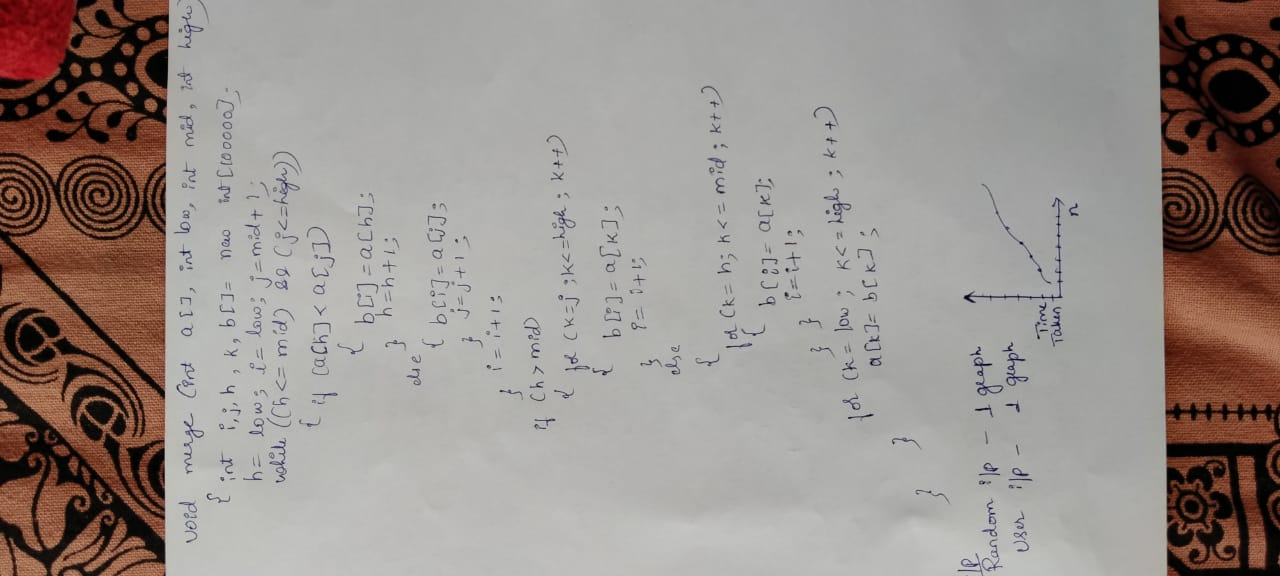 void merge (int a[], int low, int mid, int high)
{ int i,j, h, k, b[]= new int [100000];
h= low; i= low; j=mid+1;
while ((h<= mid) && (j<=high))
{ if (a[h] < a[j])
{
b[i] = a[h];
h=h+1;
}
else
{ b[i]= a[j];
j=j+1;
}
i= i+1;
}
if (h>mid)
{ for (k=j ;k<=high ; k++)
{ b[i]= a[k];
i= i+1;
}
else
{
for (k= h; k<= mid; k++)
{
b[i]= a[k];
i=i+1;
} }
for (k= low ; k<=high ; k++)
a[k]= b[k];
}
}
/p
Random i/p - 1 graph
User i/p - 1 graph
Time
Taken
n